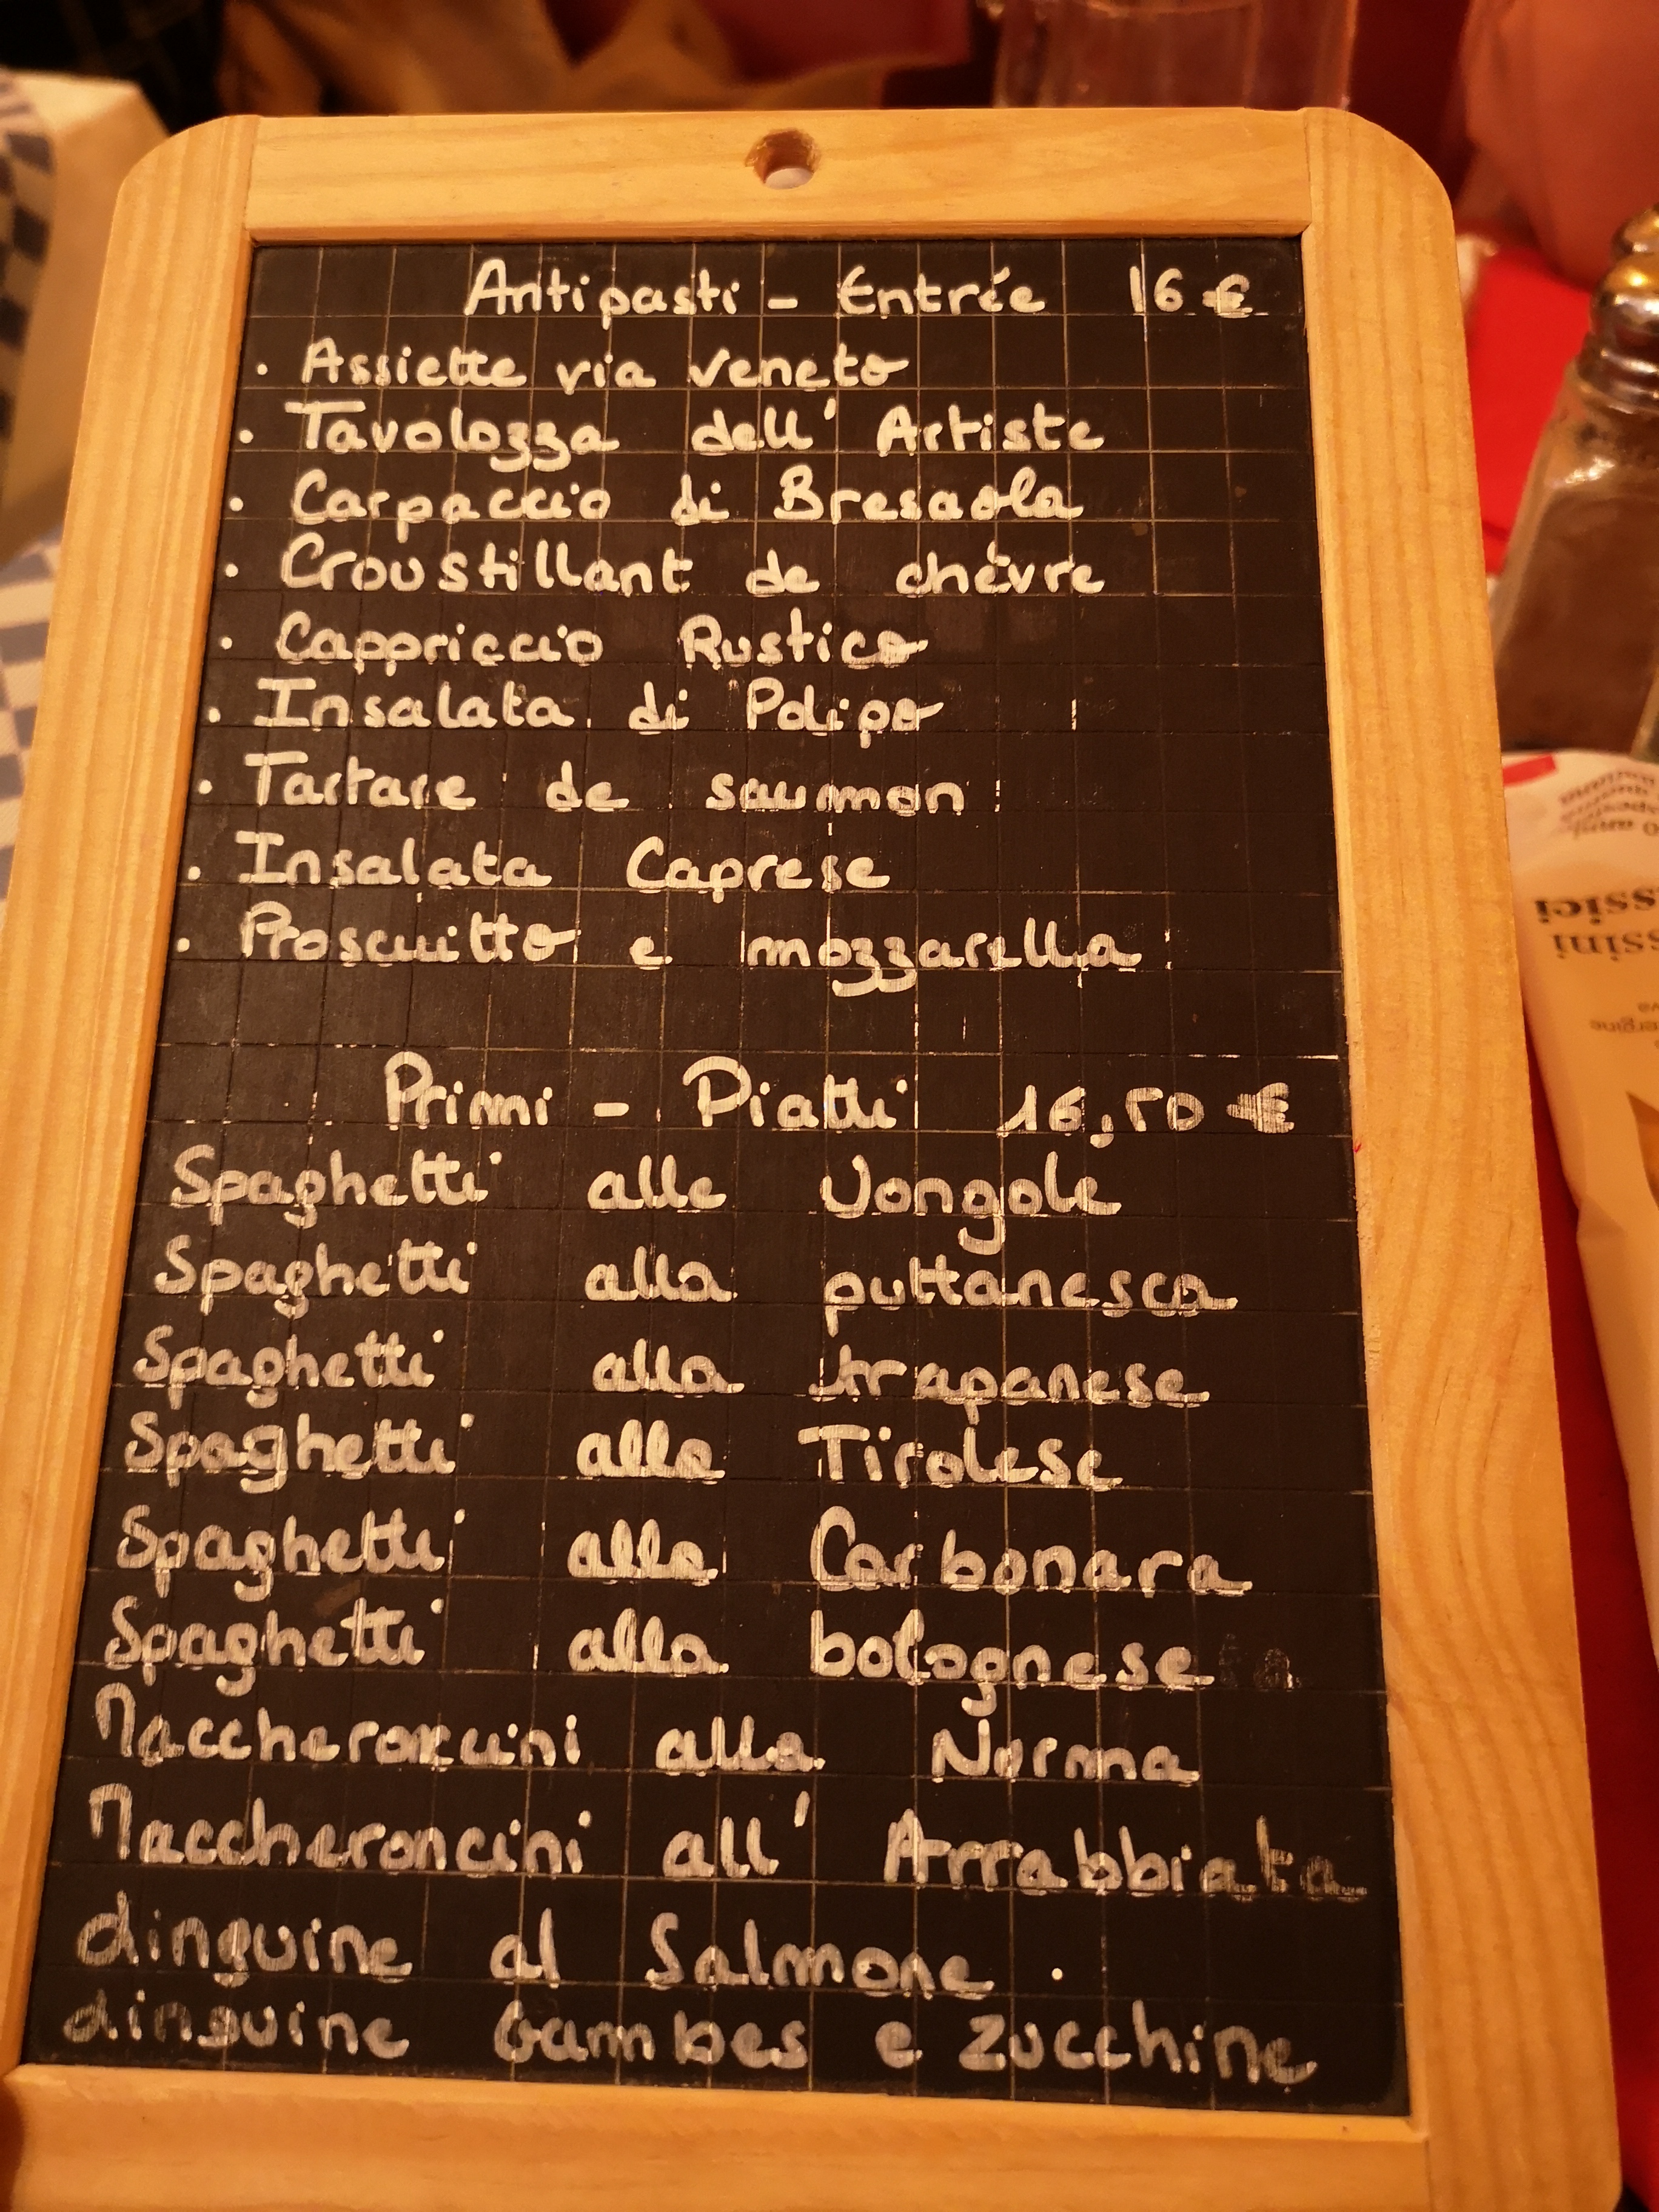 Antipasti - Entrée 16 €
. Assiette via veneto
. Tavolozza dell' Artiste
. Carpaccio di Bresaola
. Croustillant de chèvre
. Cappriccio Rustico
. Insalata di Polipo
. Tartare de saumon
. Insalata Caprese
. Proscuitto e mozzarella
Primi - Piatti 16,50 €
Spaghetti alle Vongole
Spaghetti alla puttanesca
Spaghetti alla trapanese
Spaghetti alla Tirolese
Spaghetti alla Carbonara
Spaghetti alla bolognese
Maccheroncini alla Norma
Maccheroncini all' Arrabbiata
Linguine al Salmone .
Linguine Gambes e zucchine
ssici
ssini